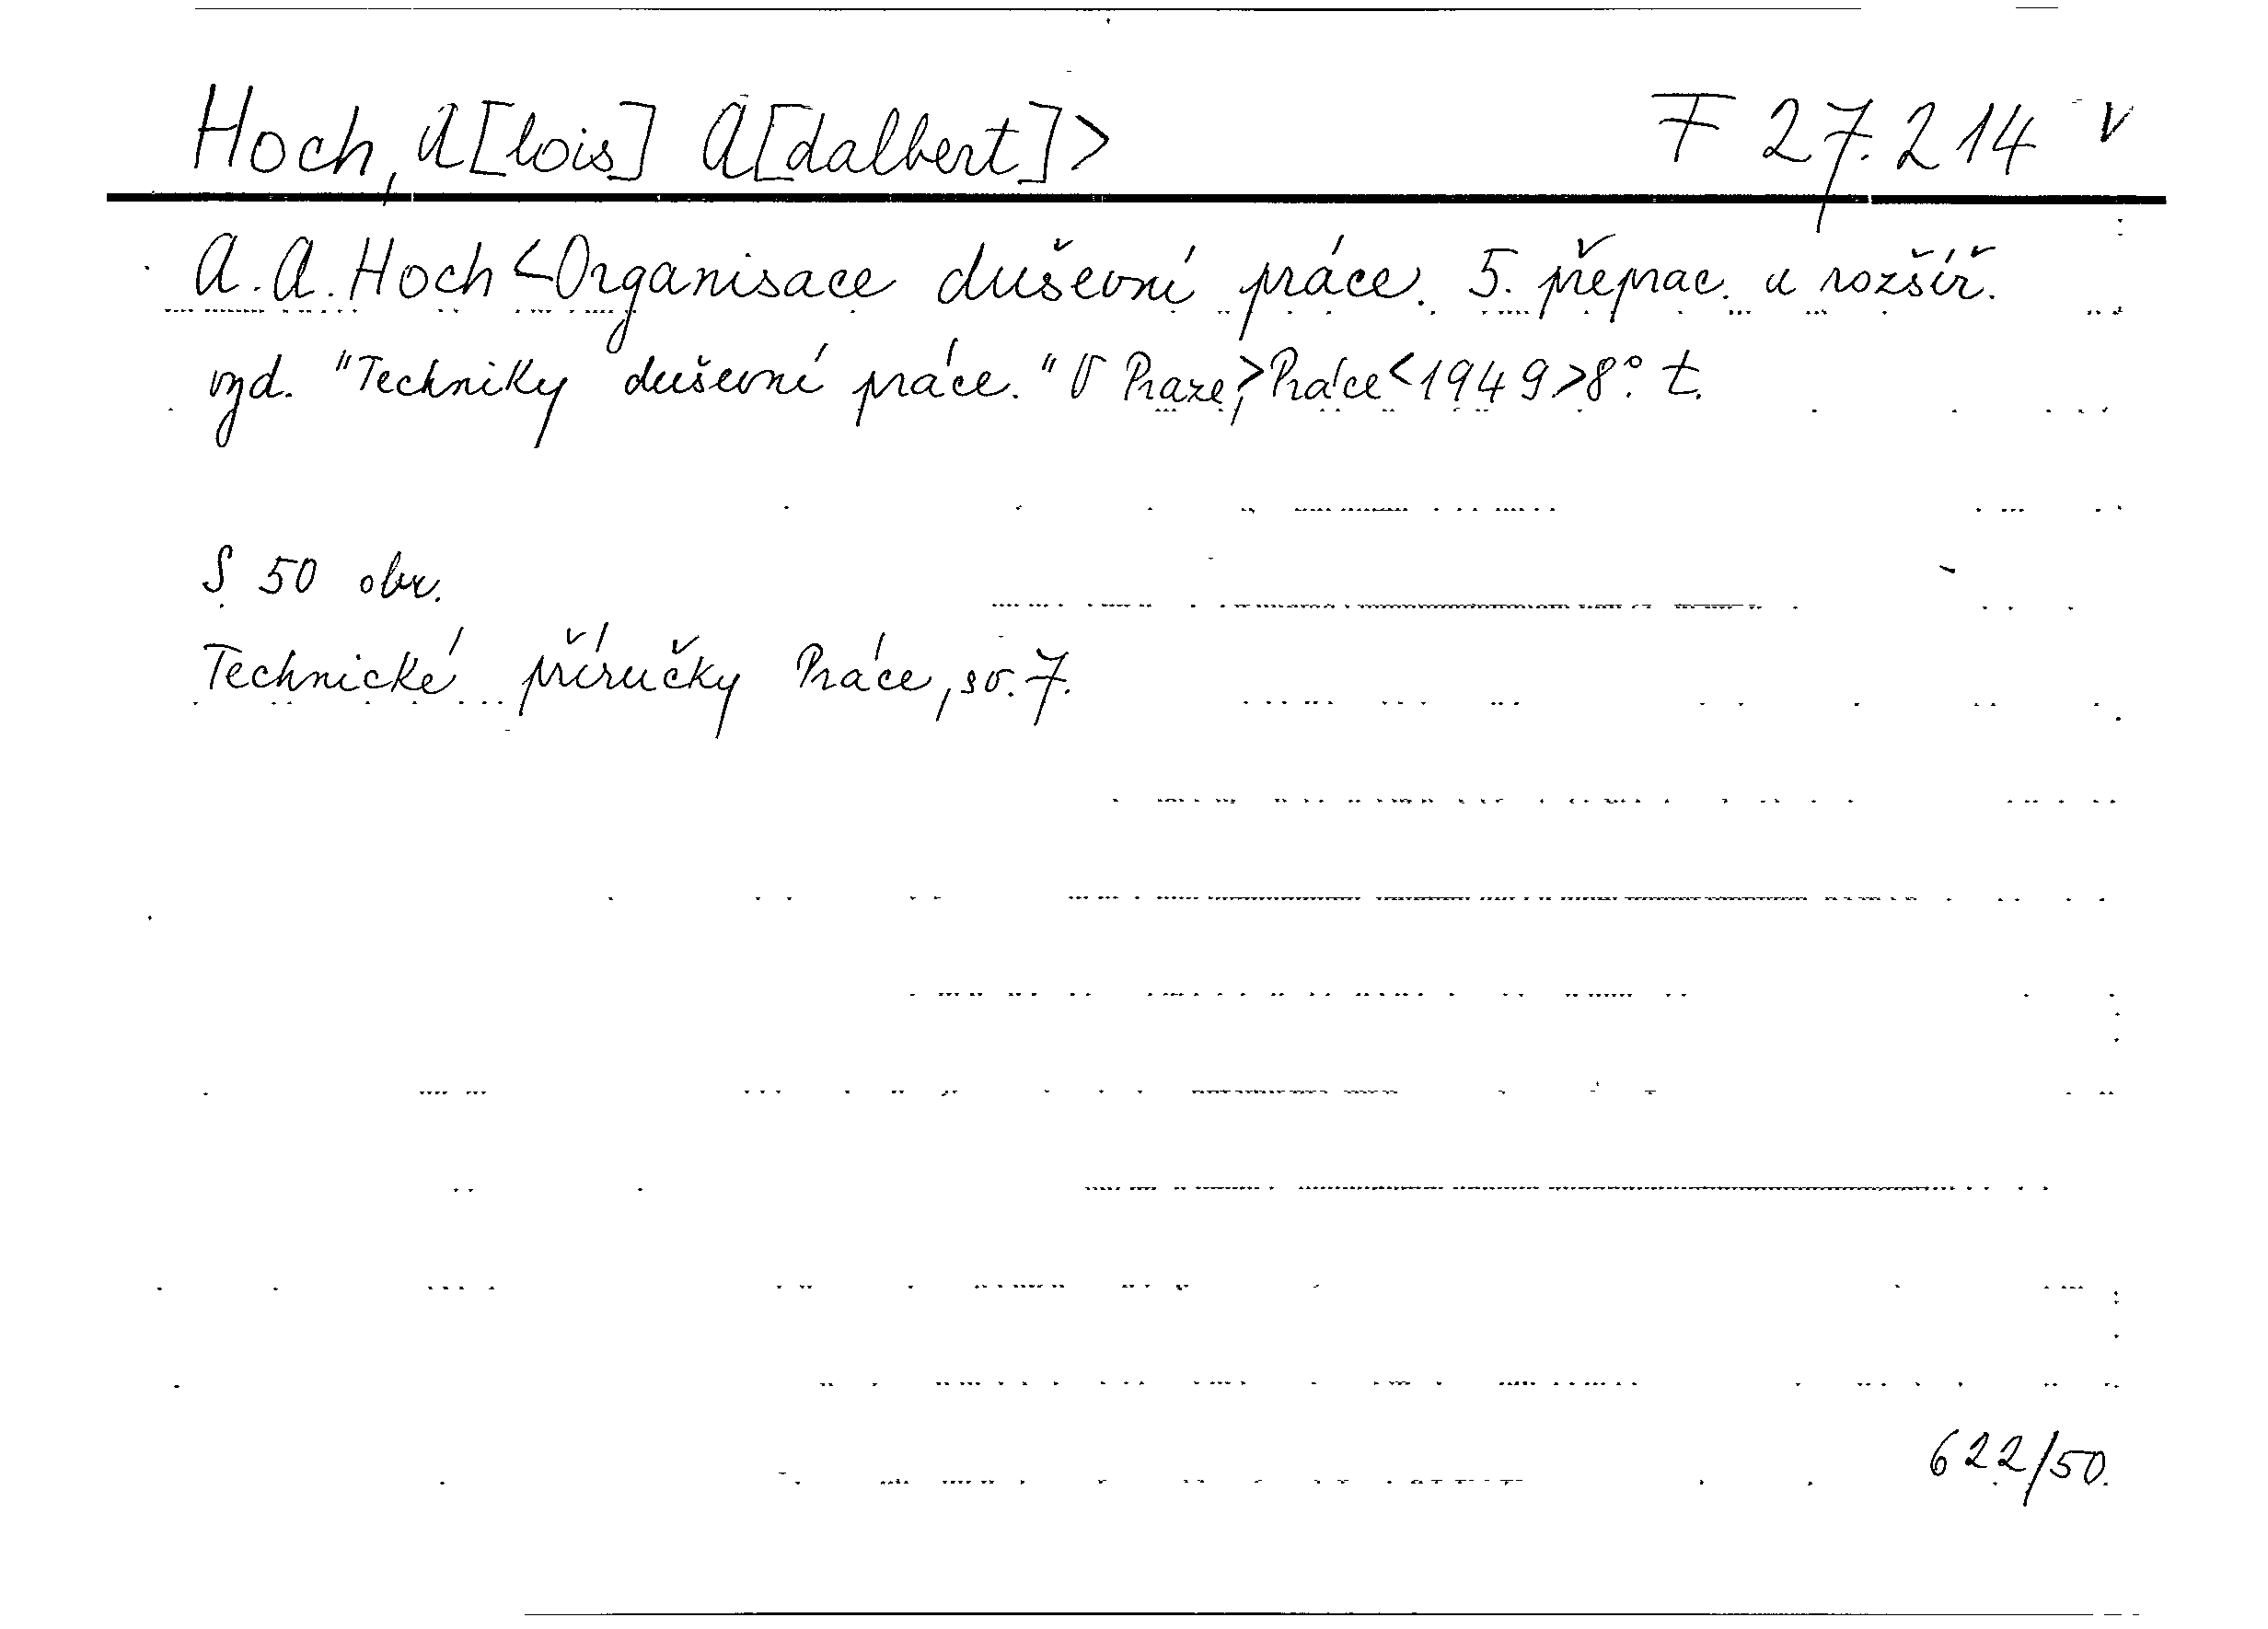 Hoch, A[lois] A[dalbert]> F 27.214 v
A. A. Hoch <Organisace duševní práce. 5. přeprac. a rozšíř.
vyd. "Techniky duševní práce." V Praze,> Práce <1949> 8° t.
S 50 obr.
Technické příručky Práce, sv. 7.
622/50.